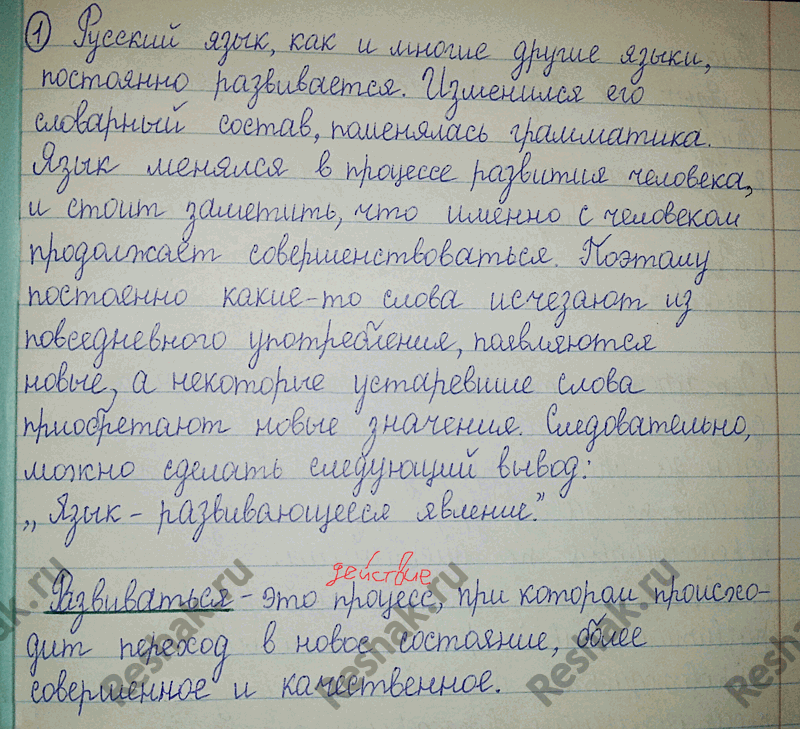 ① Русский язык, как и многие другие языки,
постоянно развивается. Изменился его
словарный состав, поменялась грамматика.
Язык менялся в процессе развития человека,
и стоит заметить, что именно с человеком
продолжает совершенствоваться. Поэтому
постоенно какие-то слова исчезают из
повседневного употребления, появляются
новые, а некоторые устаревшие слова
приобретают новые значения. Следовательно,
можно сделать следующий вывод:
„Язык – развивающееся явление."
действие
Развиваться – это процесс, при котором происхо-
дит переход в новое состояние, более
совершенное и качественное.
Reshak.ru
Reshak.ru
Reshak.ru
Reshak.ru